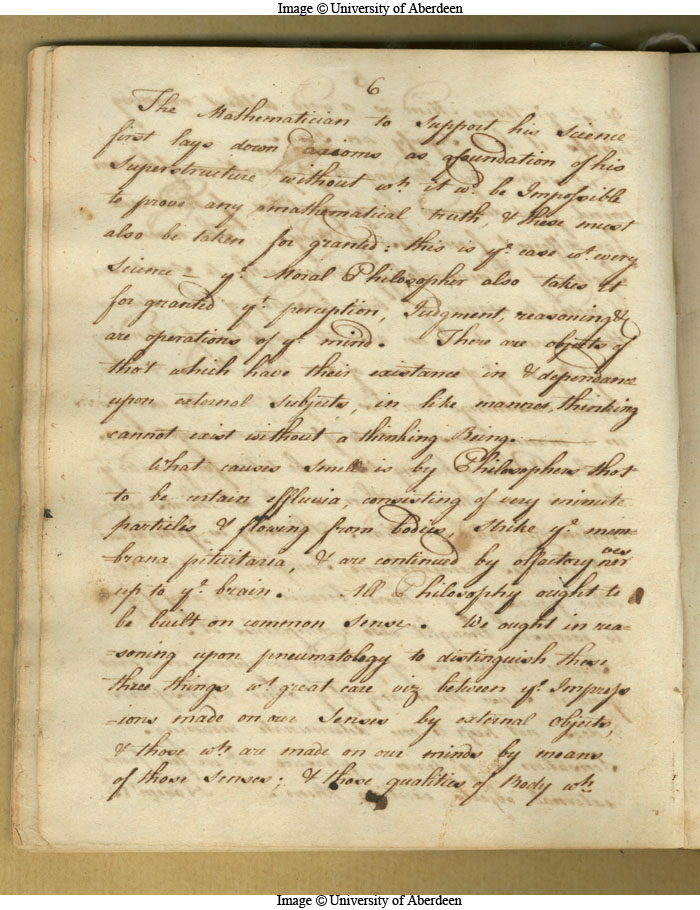 Image © University of Aberdeen
6
The Mathematician to support his science
first lays down axioms as a foundation of his
superstructure without wh. it wd. be Impossible
to prove any mathematical truth, & these must
also be taken for granted: this is ye. case wt. every
science – ye. Moral Philosopher also takes it
for granted yt. perception, Judgment, reasoning &c
are operations of ye. mind. There are objects of
thot which have their existance in & dependance
upon external subjects, in like manner, thinking
cannot exist without a thinking Being. —
What causes smell is by Philosophers thot
to be certain effluvia, consisting of very minute
particles & flowing from bodies, strike ye. mem=
=brana pituitaria, & are continued by olfactory nerves
up to ye. brain. All Philosophy ought to
be built on common sense. We ought in rea=
=soning upon pneumatology to distinguish these
three things wt. great care viz between ye. Impress
=ions made on our senses by external objects,
& those wh. are made on our minds by means
of those senses; & those qualities of Body wh.
Image © University of Aberdeen